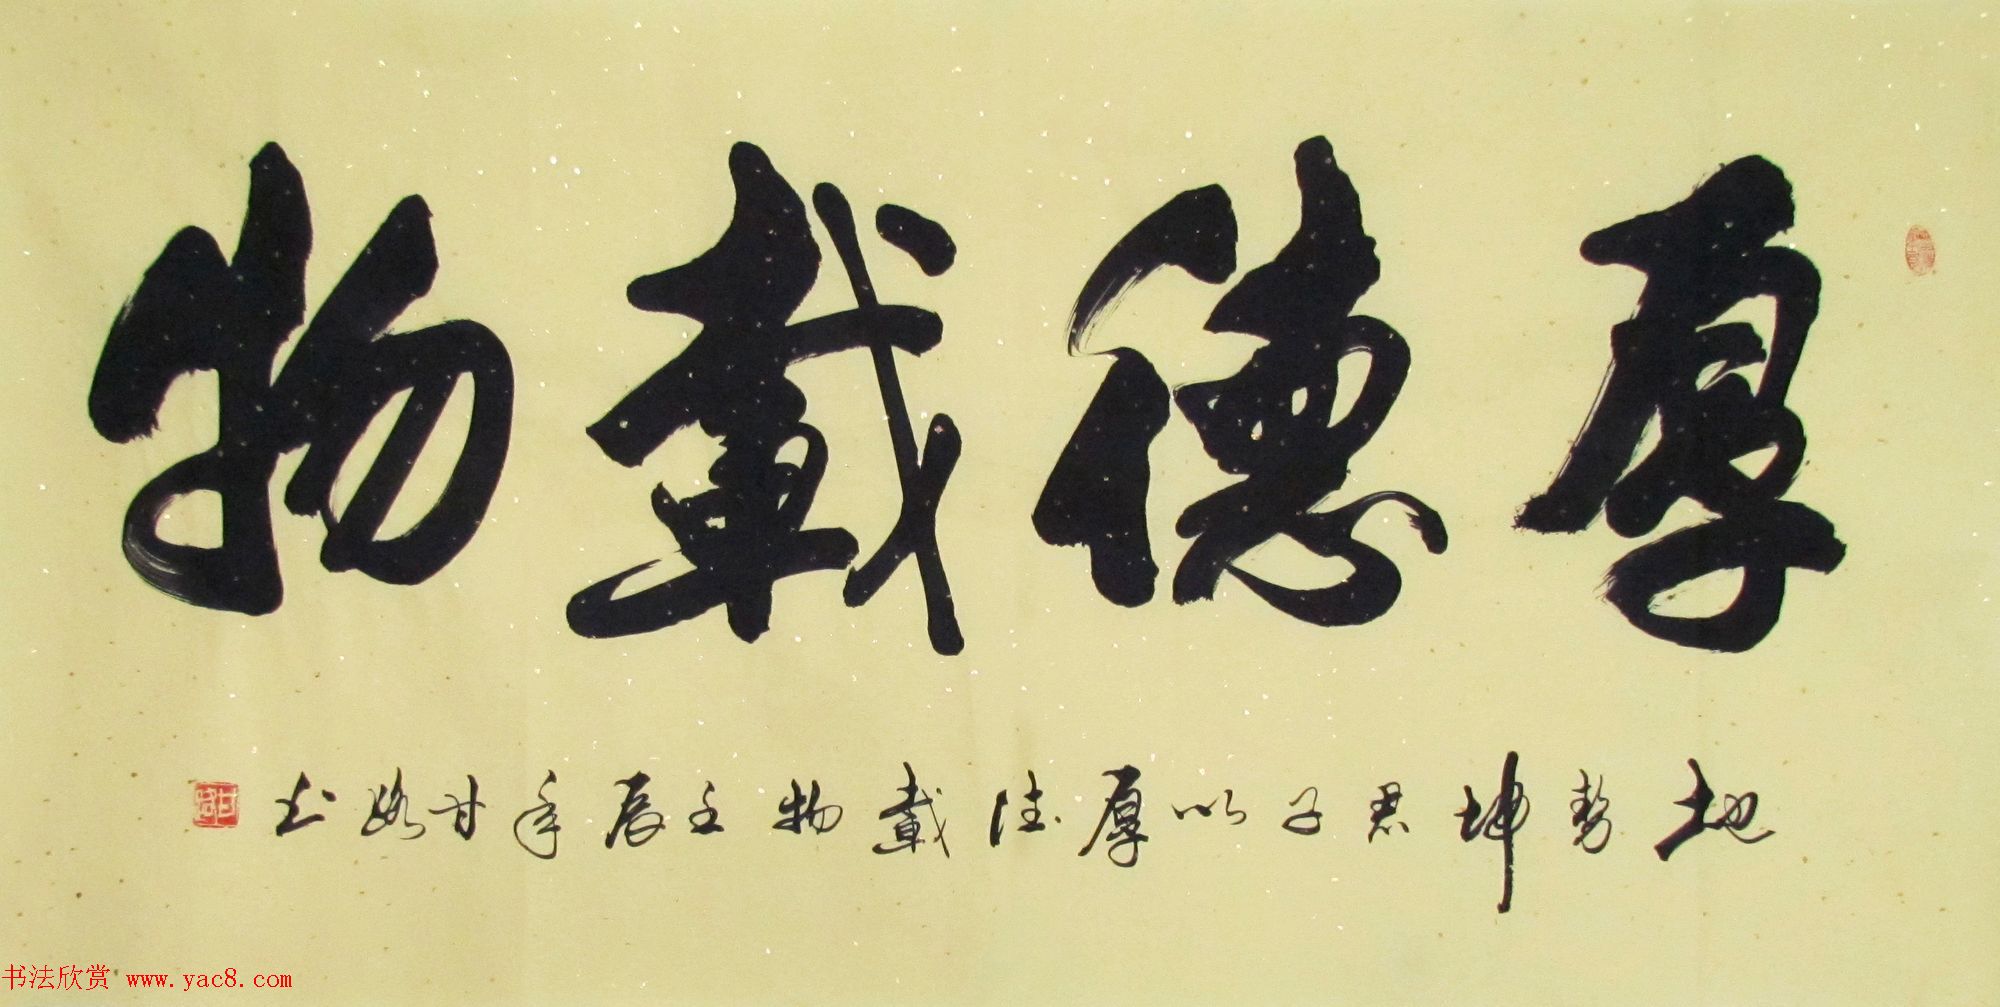 厚德載物
地勢坤君子以厚德載物壬辰年甘路书
书法欣赏 www.yac8.com